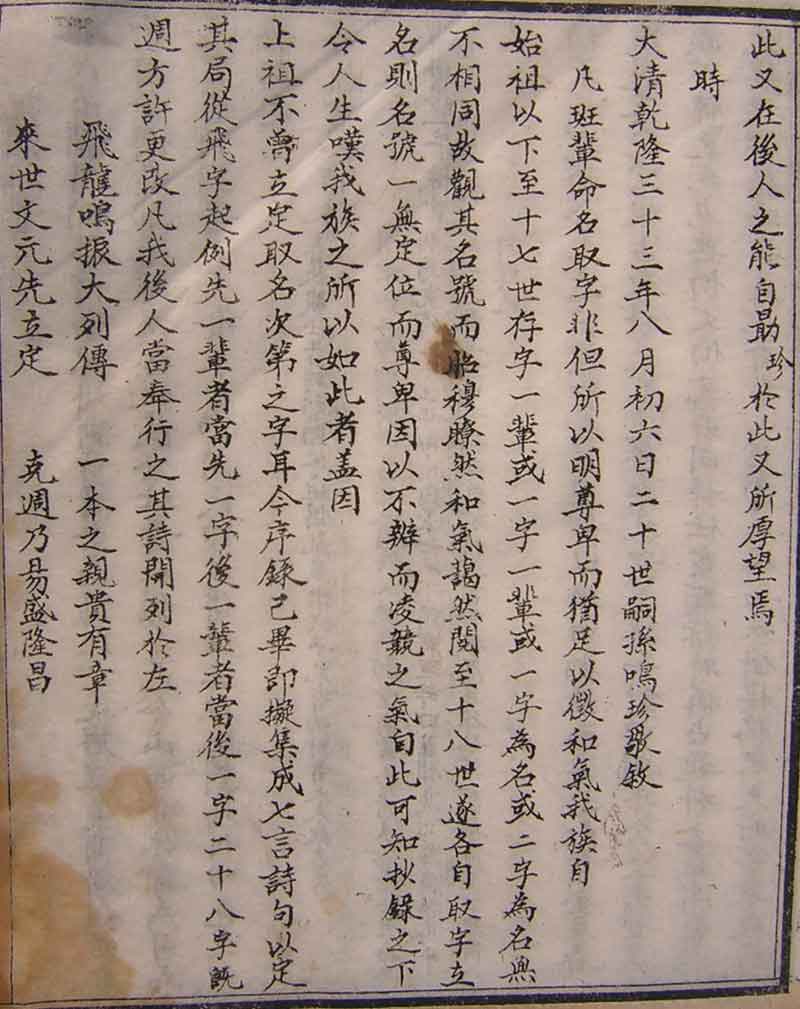 此又在後人之能自勗珍於此又所厚望焉
時
大清乾隆三十三年八月初六日二十世嗣孫鳴珍敬敘
凡班輩命名取字非但所以明尊卑而猶足以徵和氣我族自
始祖以下至十七世存字一輩或一字一輩或一字為名或二字為名無
不相同故觀其名號而昭穆瞭然和氣藹然閱至十八世遂各自取字立
名則名號一無定位而尊卑因以不辨而凌競之氣自此可知抄錄之下
令人生嘆我族之所以如此者盖因
上祖不曾立定取名次第之字耳今序錄已畢即擬集成七言詩句以定
其局從飛字起例先一輩者當先一字後一輩者當後一字二十八字既
週方許更改凡我後人當奉行之其詩開列於左
飛龍鳴振大列傳 一本之親貴有章
來世文元先立定 克週乃易盛隆昌